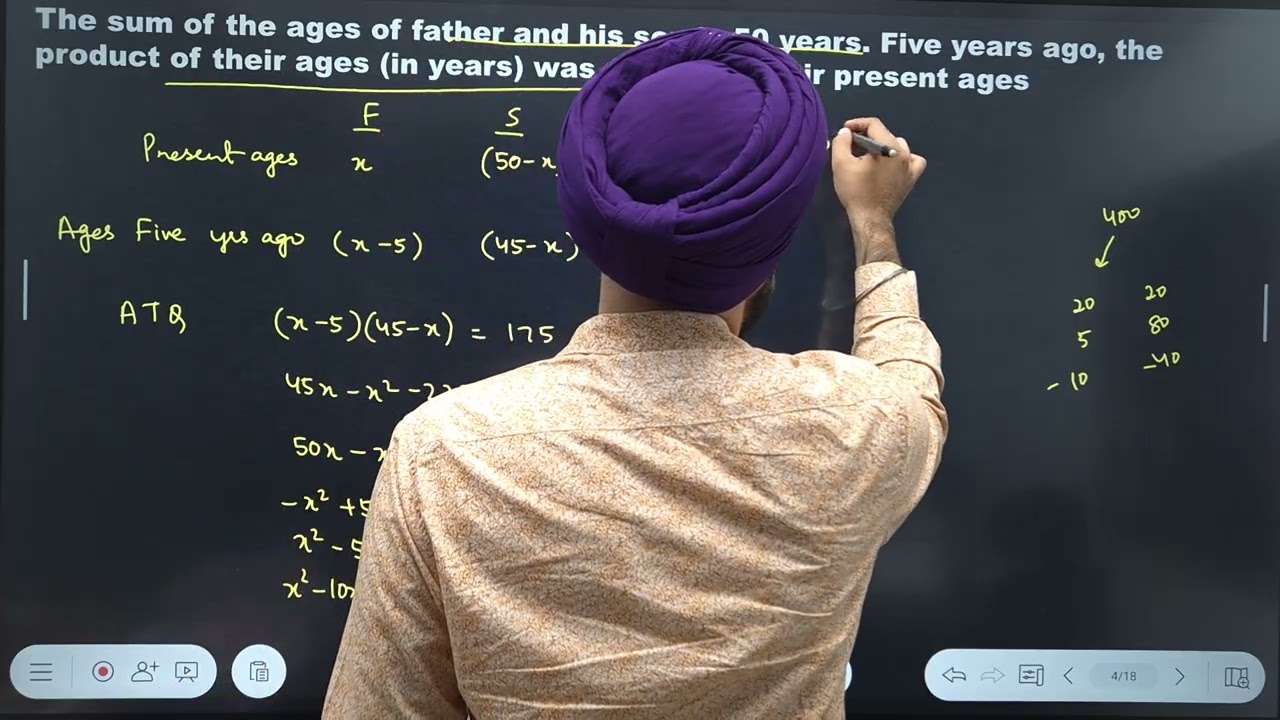 The sum of the ages of father and his 50 years. Five years ago, the
product of their ages (in years) was present ages
F S
Present ages x (50-x
Ages Five yrs ago (x-5) (45-x)
ATQ (x-5)(45-x) = 175
45x-x²
50x-
-x²+
x²-
x²-10x
400
20 20
5 80
-10 -40
4/18